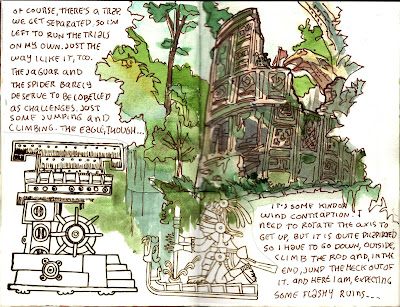 OF COURSE, THERE'S A TRAP.
WE GET SEPARATED, SO I'M
LEFT TO RUN THE TRIALS
ON MY OWN. JUST THE
WAY I LIKE IT, TOO.
THE JAGUAR AND
THE SPIDER BARELY
DESERVE TO BE LABELLED
AS CHALLENGES. JUST
SOME JUMPING AND
CLIMBING. THE EAGLE, THOUGH...
IT'S SOME KIND OF
WIND CONTRAPTION. I
NEED TO ROTATE THE AXIS TO
GET UP, BUT IT IS QUITE DILAPIDATED
SO I HAVE TO GO DOWN, OUTSIDE,
CLIMB THE ROD AND, IN THE
END, JUMP THE HECK OUT OF
IT. AND HERE I AM, EXPECTING
SOME FLASHY RUINS...